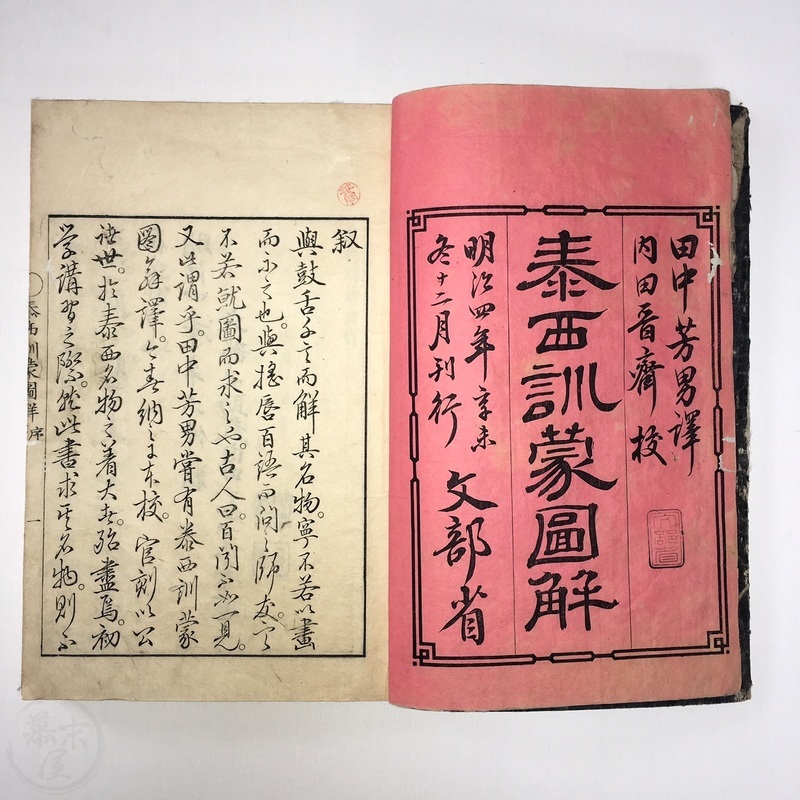 田中芳男譯
内田晋齋校
泰西訓蒙圖解
明治四年辛未
冬十二月刊行
文部省
叙
與鼓舌千言而解其名物。寧不若以畫
而示之也。與搖唇百語而問之師友。寧
不若就圖而求之也。古人曰百闻不如一見。
又此謂乎。田中芳男嘗有泰西訓蒙
圖解譯。今春納之于本校。官刻以公
諸世。於泰西名物之著大者。殆盡焉。初
学講習之際。就此書求其名物。則不
泰西訓蒙圖解 序 一
幕末屋